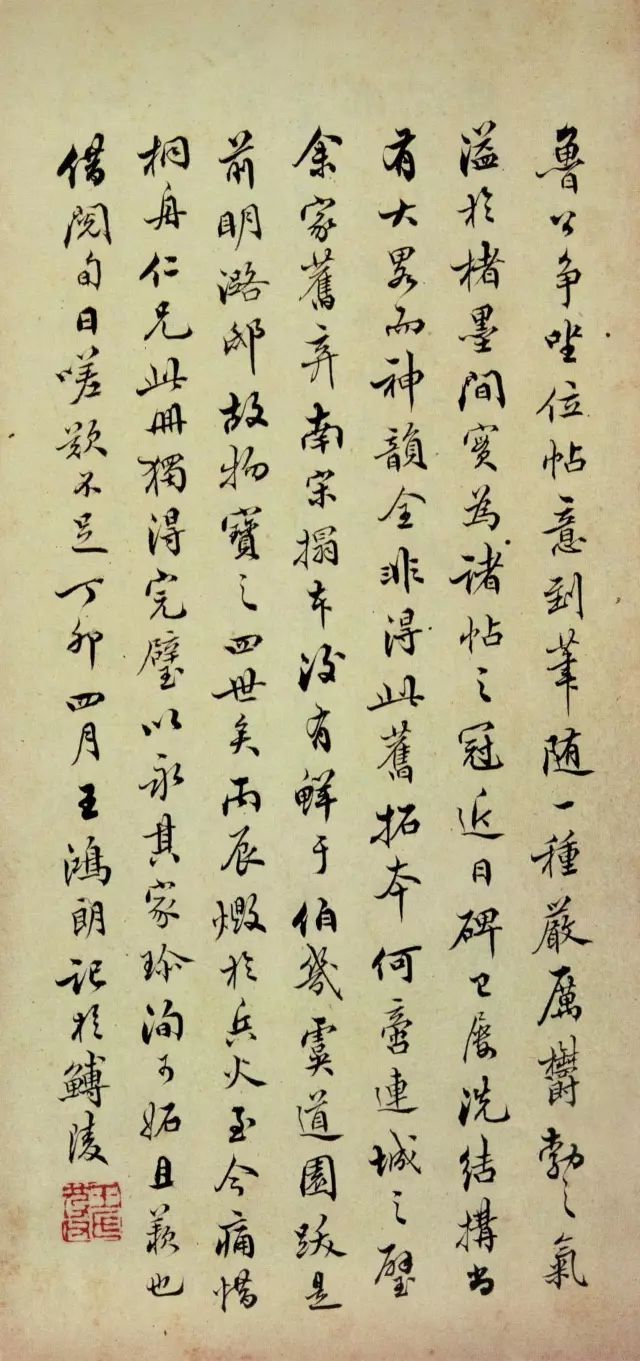 魯公争坐位帖意到筆随一種嚴厲鬱勃之氣
溢於楮墨間實為諸帖之冠近日碑已屡洗結構尚
有大畧而神韻全非得此舊拓本何啻連城之璧
余家舊弆南宋搨本後有鮮于伯幾虞道園跋是
前明潞邸故物寶之四世矣丙辰燬於兵火至今痛惜
桐舟仁兄此冊獨得完璧以永其家珎洵可妬且羨也
借閱旬日嗟歎不足丁卯四月王鴻朗記於鱄陵